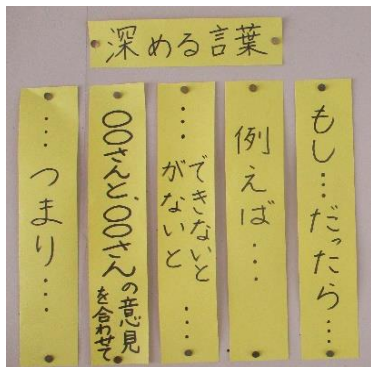 深める言葉
もし…だったら…
例えば…
…できないと
がないと…
〇〇さんと、〇〇さんの意見
を合わせて
…つまり…